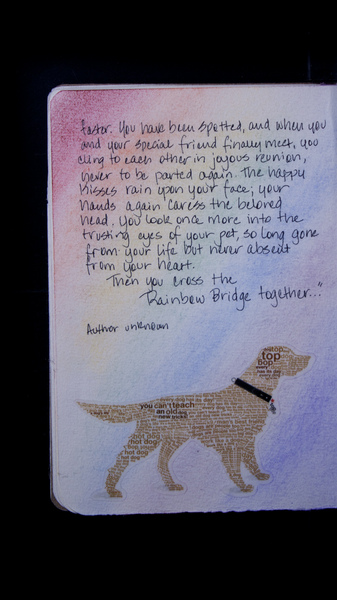 faster. You have been spotted, and when you
and your special friend finally meet, you
cling to each other in joyous reunion,
never to be parted again. The happy
kisses rain upon your face; your
hands again caress the beloved
head. You look once more into the
trusting eyes of your pet, so long gone
from your life but never absent
from your heart.
Then you cross the
Rainbow Bridge together..."
Author unknown
top
dog
you can't teach
an old dog
new tricks
hot dog
hot dog
hot dog